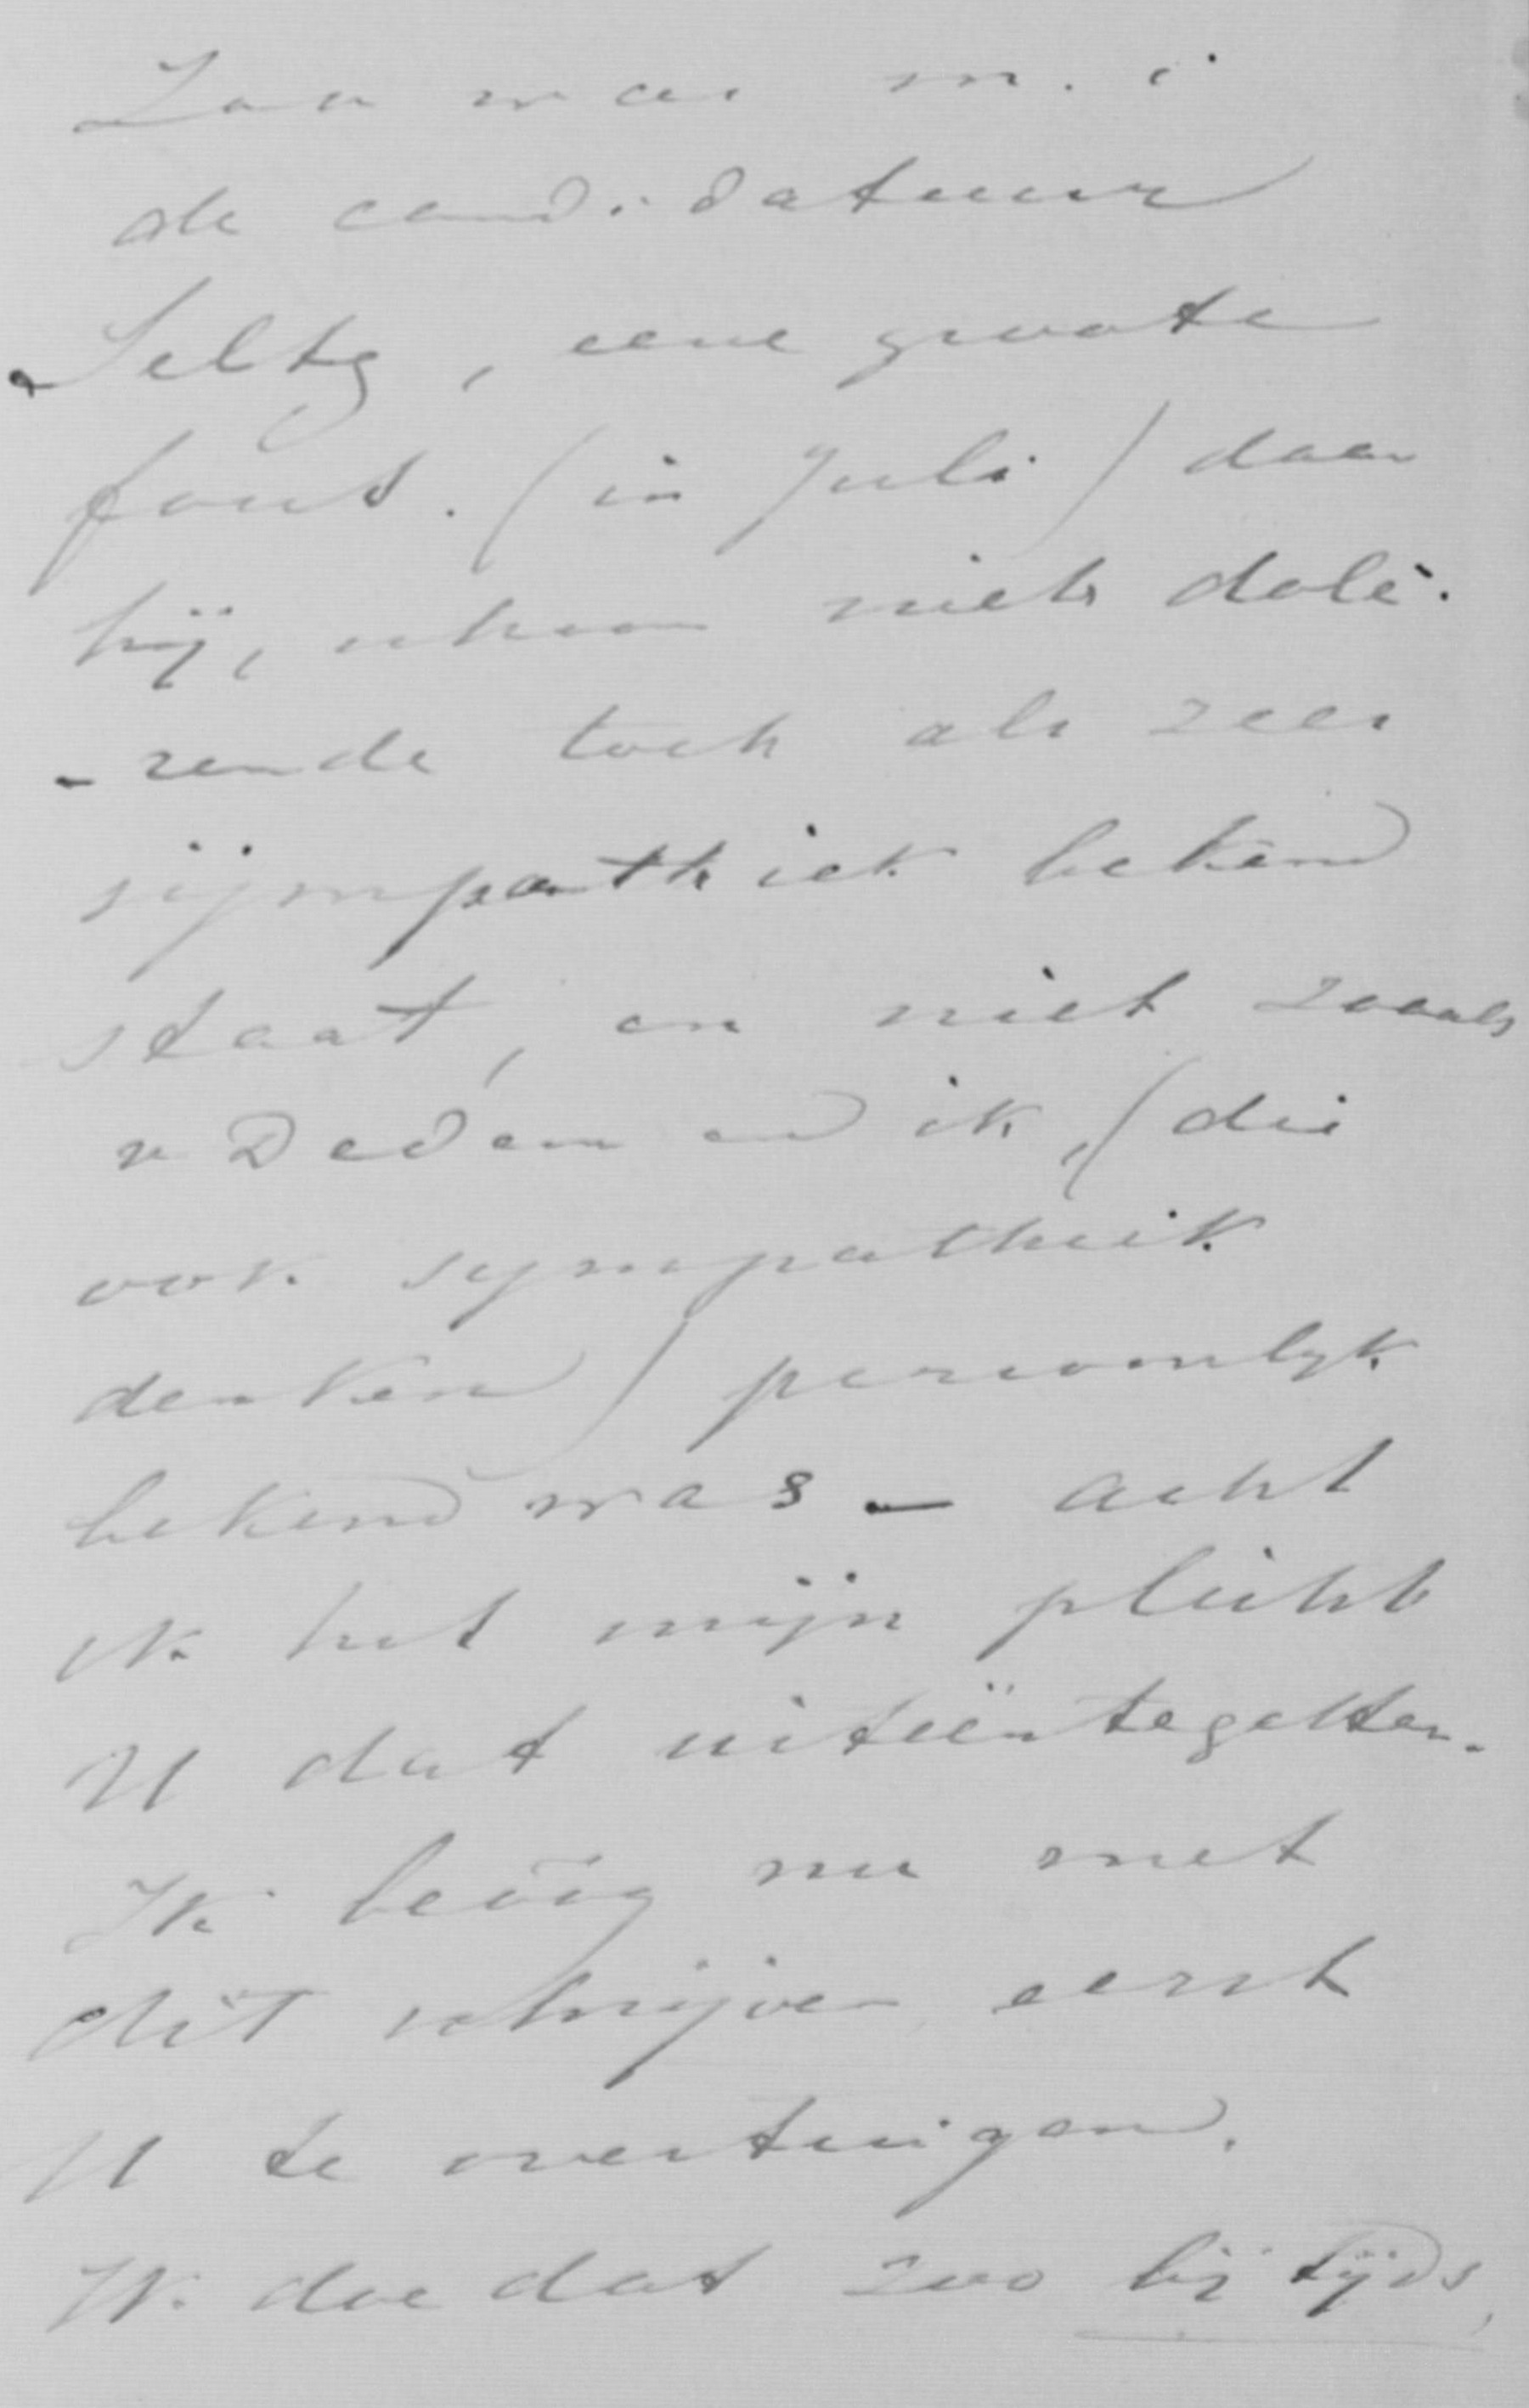 Zoo was m. i
de candidatuur
Seltz, eene groote
fout. (in Juli) daar
hij, schoon niet dolé-
-rende toch als zeer
sijmpathiek bekend
staat, en niet zooals
v Dedem en ik, (die
ook sympathiek
denken) persoonlyk
bekend was - acht
ik het mijn plicht
U dat uitéén te zetten.
Ik beoog nu met
dit schrijven eerst
U te overtuigen.
Ik doe dat zoo bij tijds,